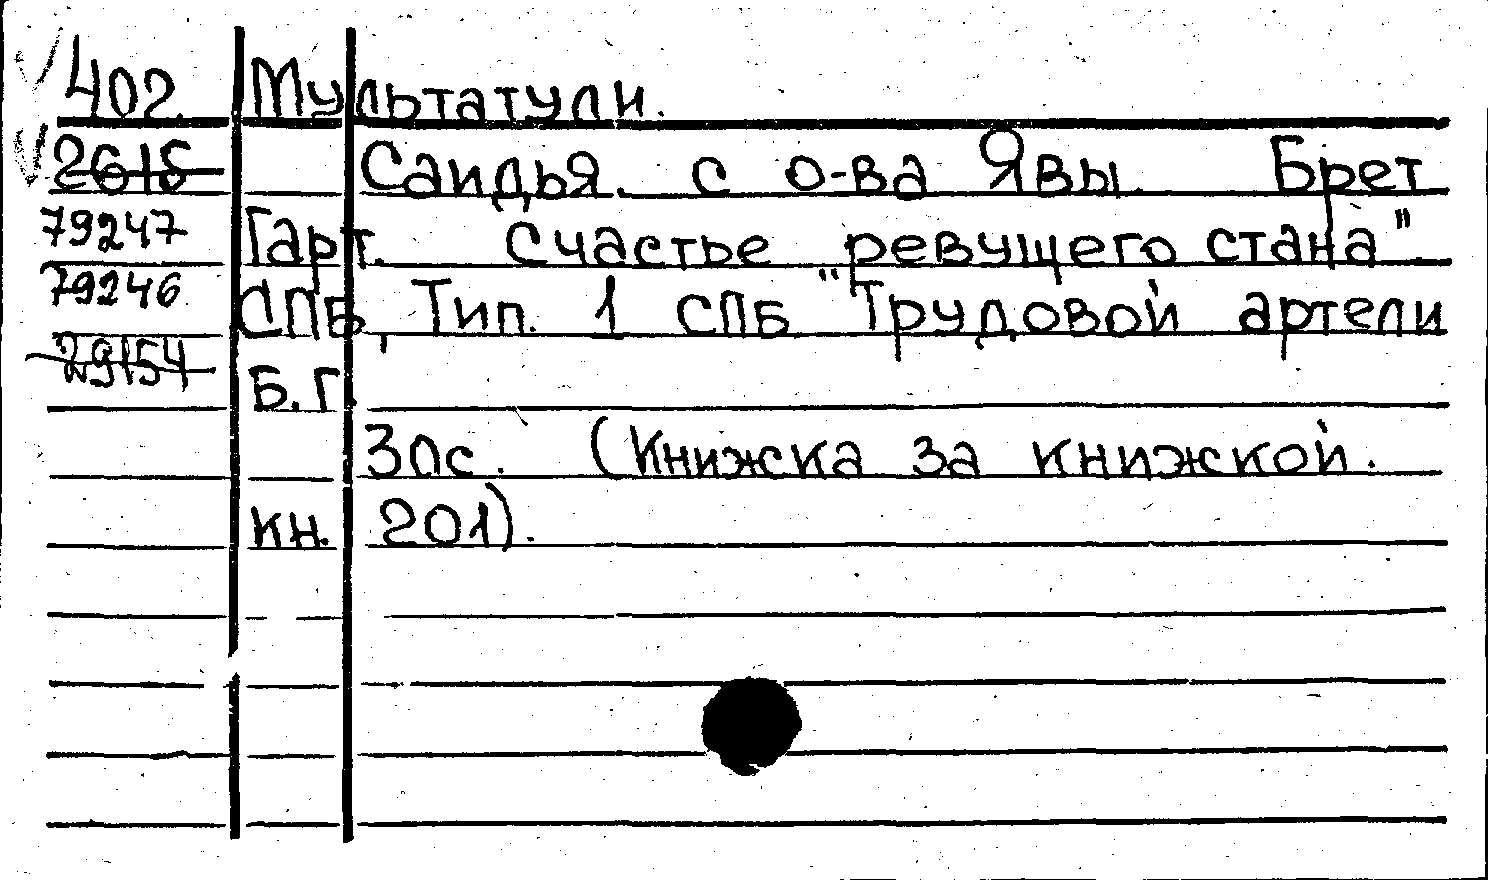 402. Мультатули.
2618 Саидья. с о-ва Явы. Брет
79247 Гарт. Счастье "ревущего стана".
79246 СПБ, Тип. 1 СПБ "Трудовой артели
29154 Б.г.
30с. (Книжка за книжкой.
кн. 201).